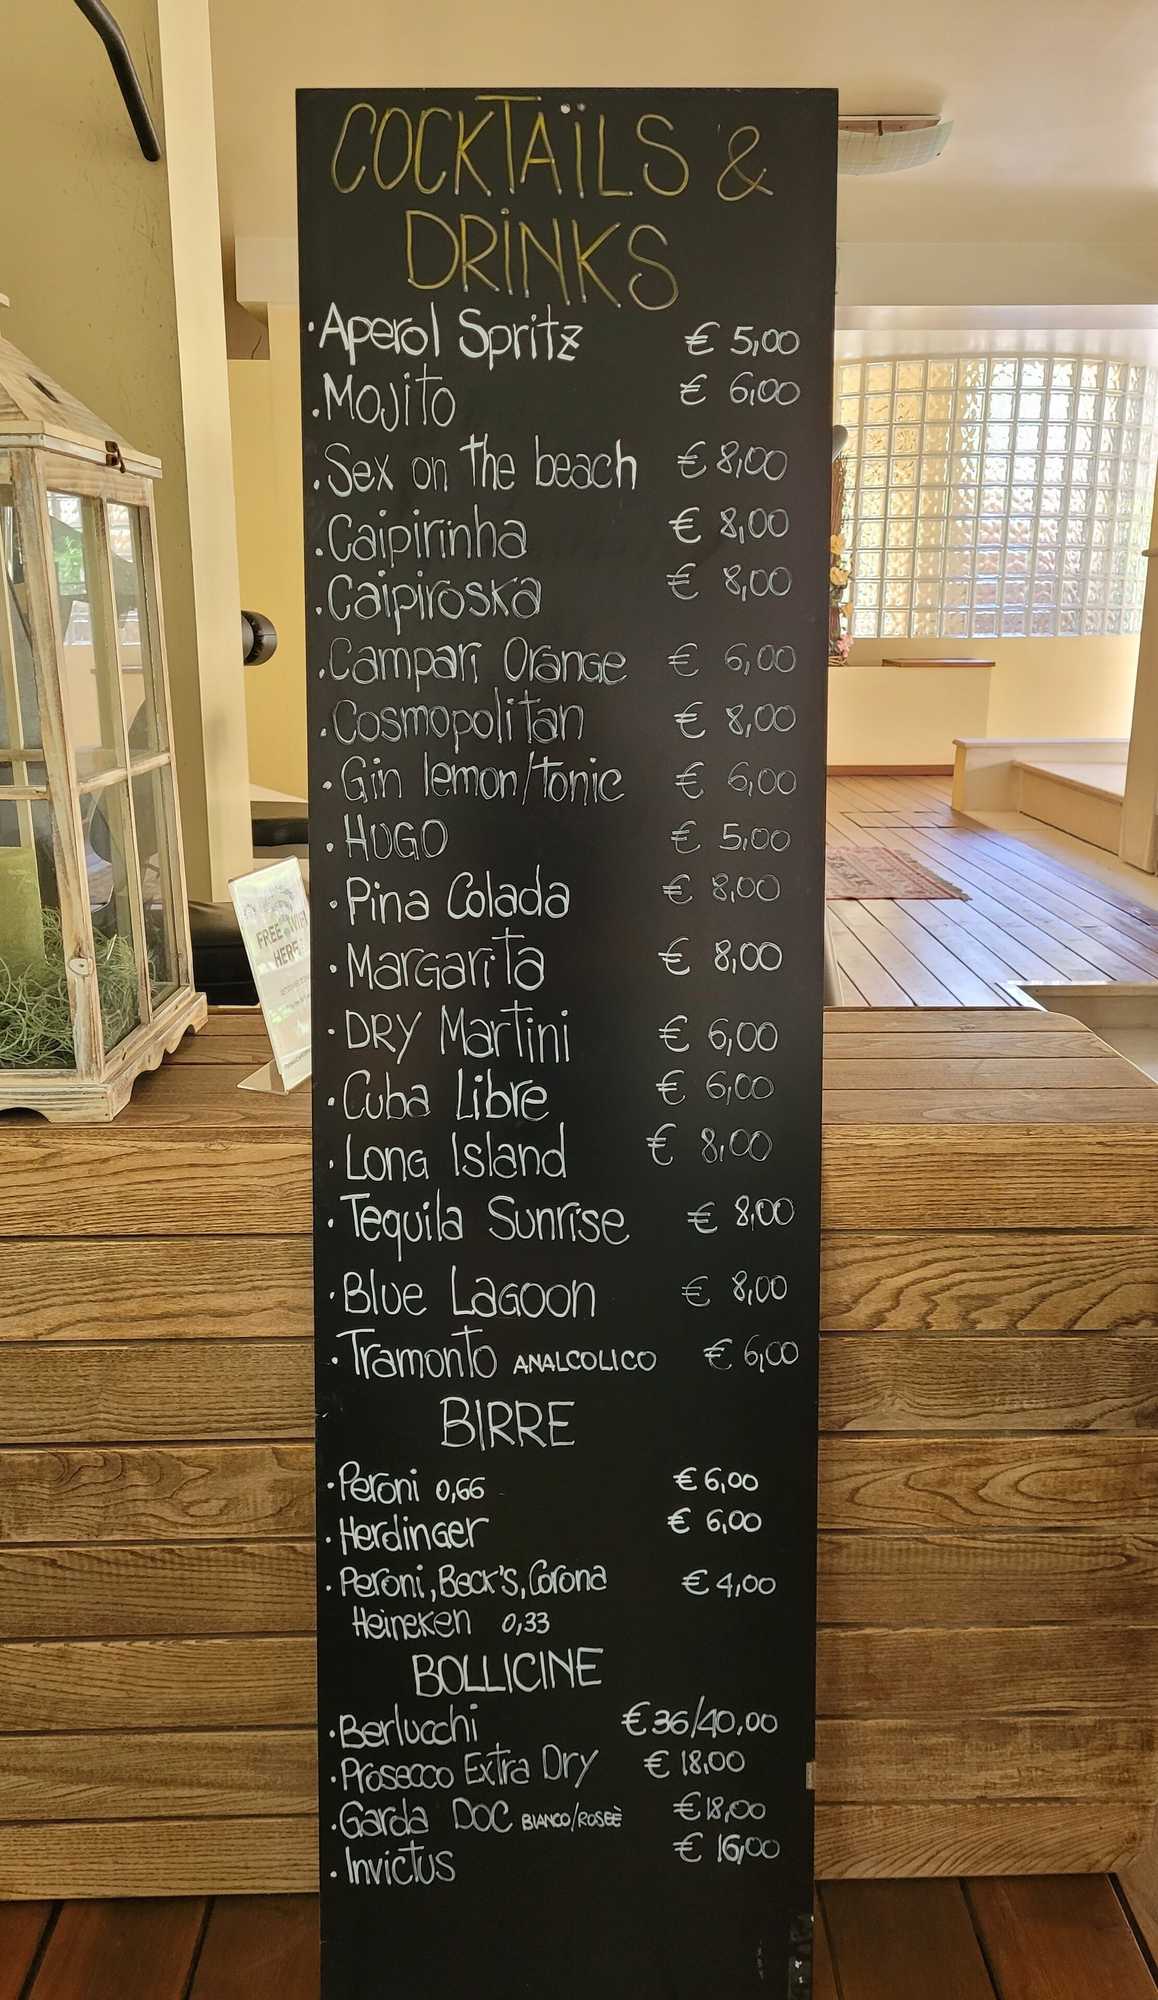 COCKTAÏLS &
DRINKS
· Aperol Spritz € 5,00
· Mojito € 6,00
· Sex on the beach € 8,00
· Caipirinha € 8,00
· Caipiroska € 8,00
· Campari Orange € 6,00
· Cosmopolitan € 8,00
· Gin lemon/tonic € 6,00
· HUGO € 5,00
· Pina Colada € 8,00
· Margarita € 8,00
· DRY Martini € 6,00
· Cuba Libre € 6,00
· Long Island € 8,00
· Tequila Sunrise € 8,00
· Blue Lagoon € 8,00
· Tramonto ANALCOLICO € 6,00
BIRRE
· Peroni 0,66 € 6,00
· Herdinger € 6,00
· Peroni, Beck's, Corona € 4,00
Heineken 0,33
BOLLICINE
· Berlucchi € 36/40,00
· Prosecco Extra Dry € 18,00
· Garda DOC BIANCO/ROSEÈ € 18,00
· Invictus € 16,00
FREE
HERE